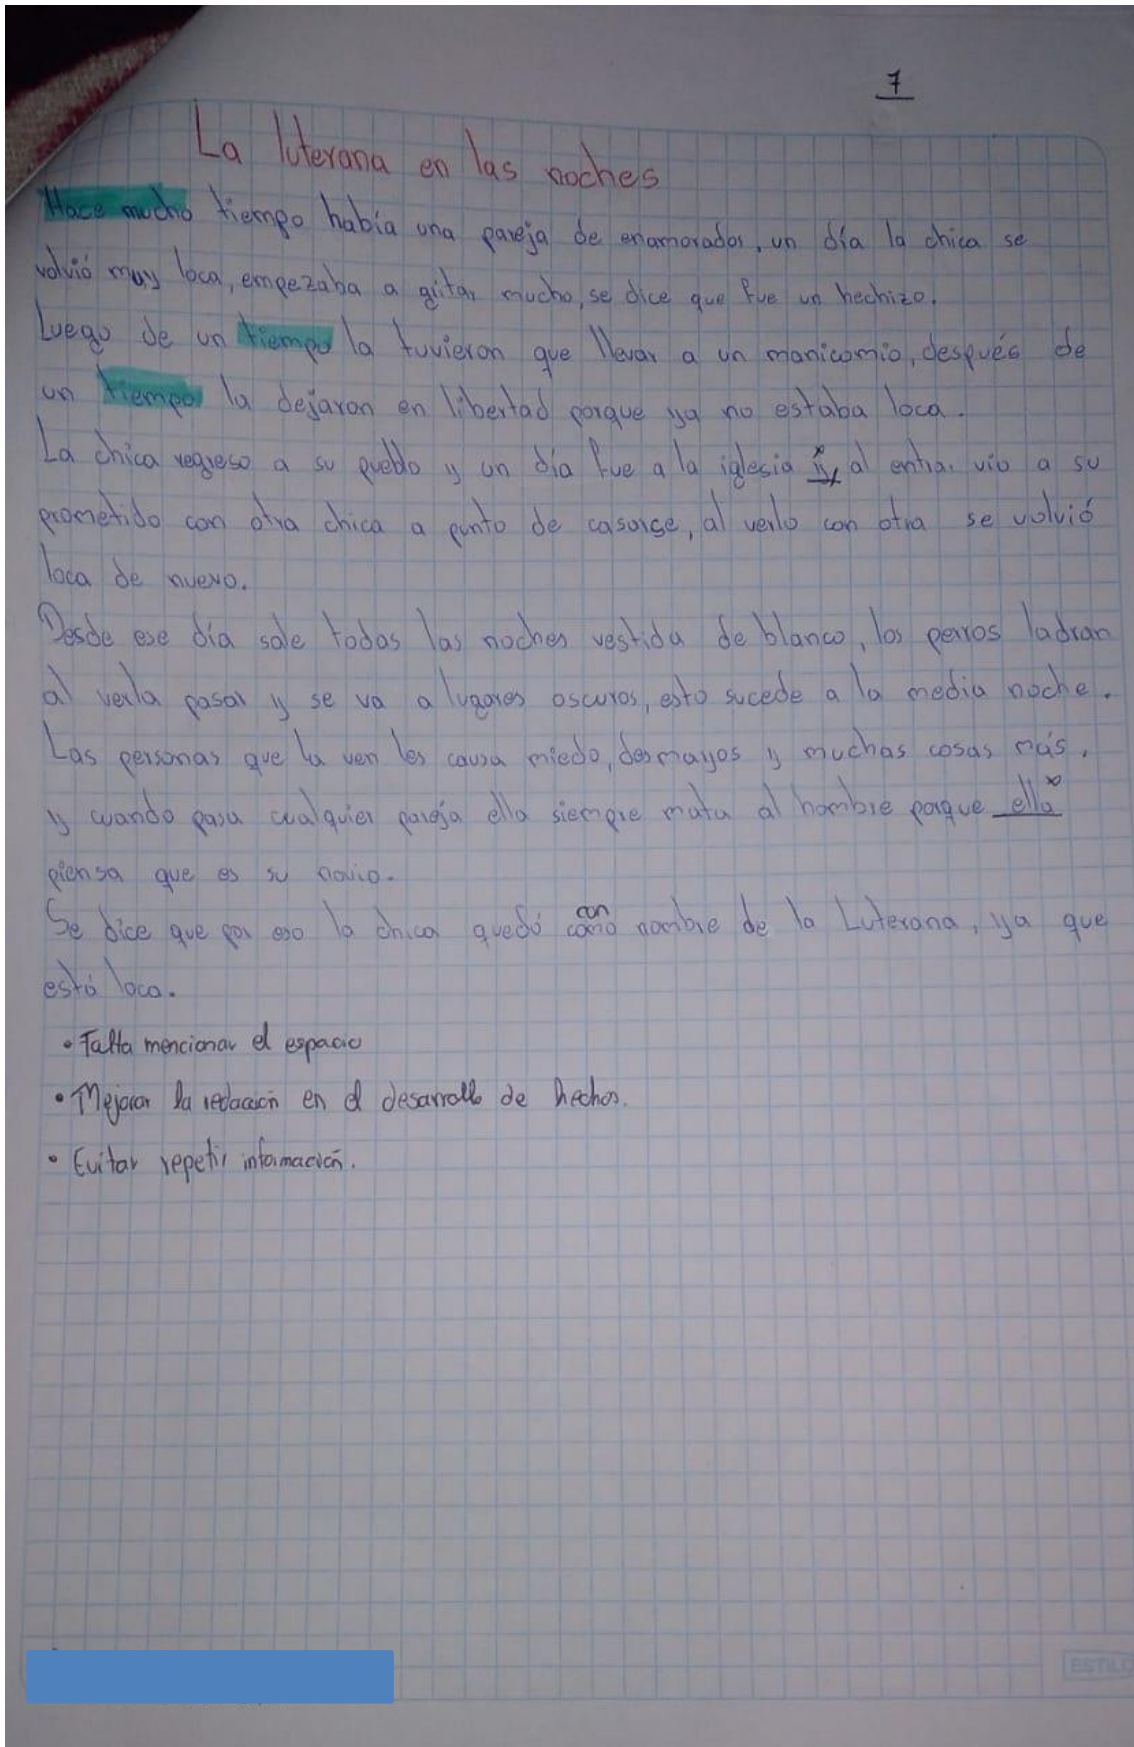 7
La luterana en las noches
Hace mucho tiempo había una pareja de enamorados, un día la chica se
volvió muy loca, empezaba a gritar mucho, se dice que fue un hechizo.
Luego de un tiempo la tuvieron que llevar a un manicomio, después de
un tiempo la dejaron en libertad porque ya no estaba loca.
La chica regreso a su pueblo y un día fue a la iglesia y, al entrar vio a su
prometido con otra chica a punto de casarse, al verlo con otra se volvió
loca de nuevo.
Desde ese día sale todas las noches vestida de blanco, los perros ladran
al verla pasar y se va a lugares oscuros, esto sucede a la media noche.
Las personas que la ven les causa miedo, desmayos y muchas cosas más,
y cuando pasa cualquier pareja ella siempre mata al hombre porque ella
piensa que es su novio.
Se dice que por eso la chica quedó como con nombre de la Luterana, ya que
está loca.
• Falta mencionar el espacio
• Mejorar la redacción en el desarrollo de hechos.
• Evitar repetir información.
ESTILO